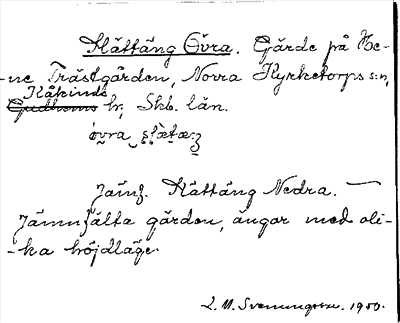 Hättäng Övra. Gärde på He-
-ne Trästgården, Norra Kyrketorps s:n,
Kåkinds
Gudhems hr, Skb. län.
Jämf. Hättäng Nedra. —
Jämnfälta gärden, ängar med oli-
-ka höjdläge.
L. M. Svenungsson. 1950.